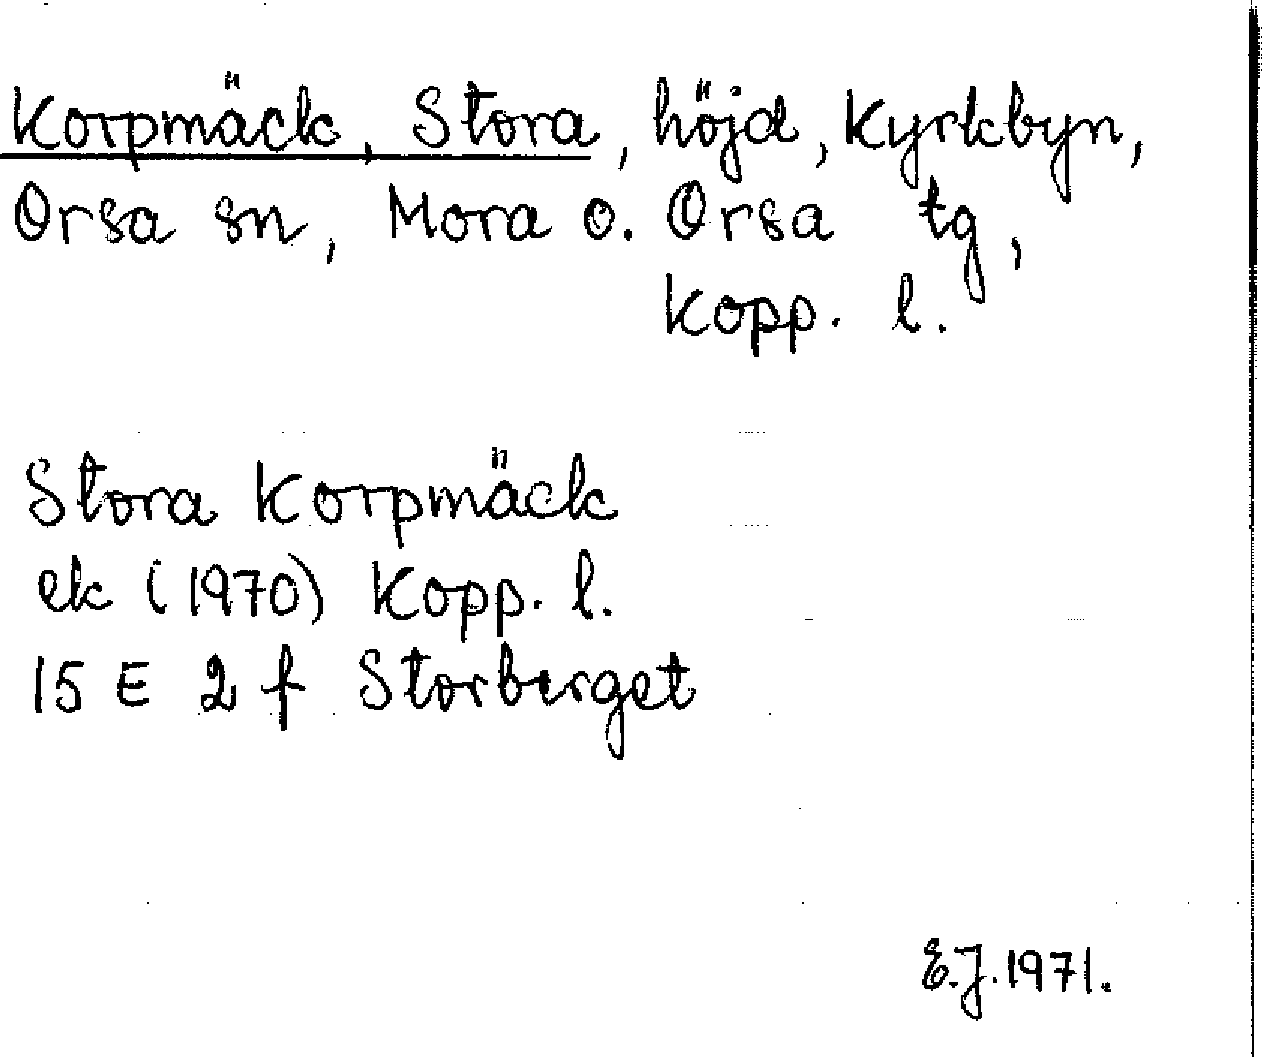 Korpmäck, Stora, höjd, Kyrkbyn,
Orsa sn, Mora o. Orsa tg,
Kopp. l.
Stora Korpmäck
ek (1970) Kopp. l.
15 E 2 f Storberget
E.J. 1971.